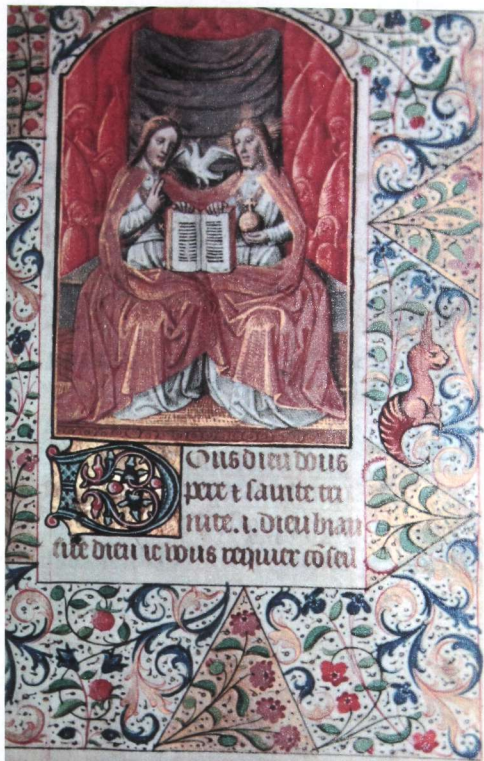 Dous dieu dous
pere ⁊ sainte tri
nite. i. dieu biau
sire dieu ie vous requier coseil